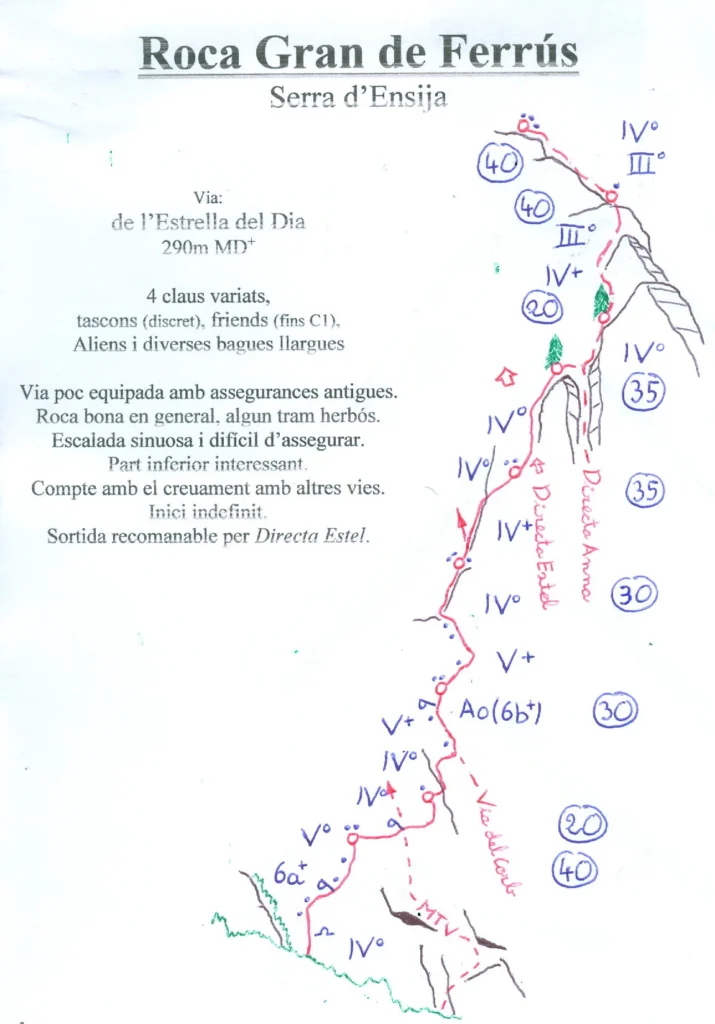 Roca Gran de Ferrús
Serra d'Ensija
Via:
de l'Estrella del Dia
290m MD+
4 claus variats,
tascons (discret), friends (fins C1),
Aliens i diverses bagues llargues
Via poc equipada amb assegurances antigues.
Roca bona en general, algun tram herbós.
Escalada sinuosa i difícil d'assegurar.
Part inferior interessant.
Compte amb el creuament amb altres vies.
Inici indefinit.
Sortida recomanable per Directa Estel.
IVº
40
IIIº
40
IIIº
IV+
20
IVº
35
IVº
IVº
35
Directa Estel
Directa Anna
IV+
IVº
30
V+
Ao(6b+)
30
V+
IVº
IVº
Via del Corb
20
Vº
40
6a+
MTV
IVº